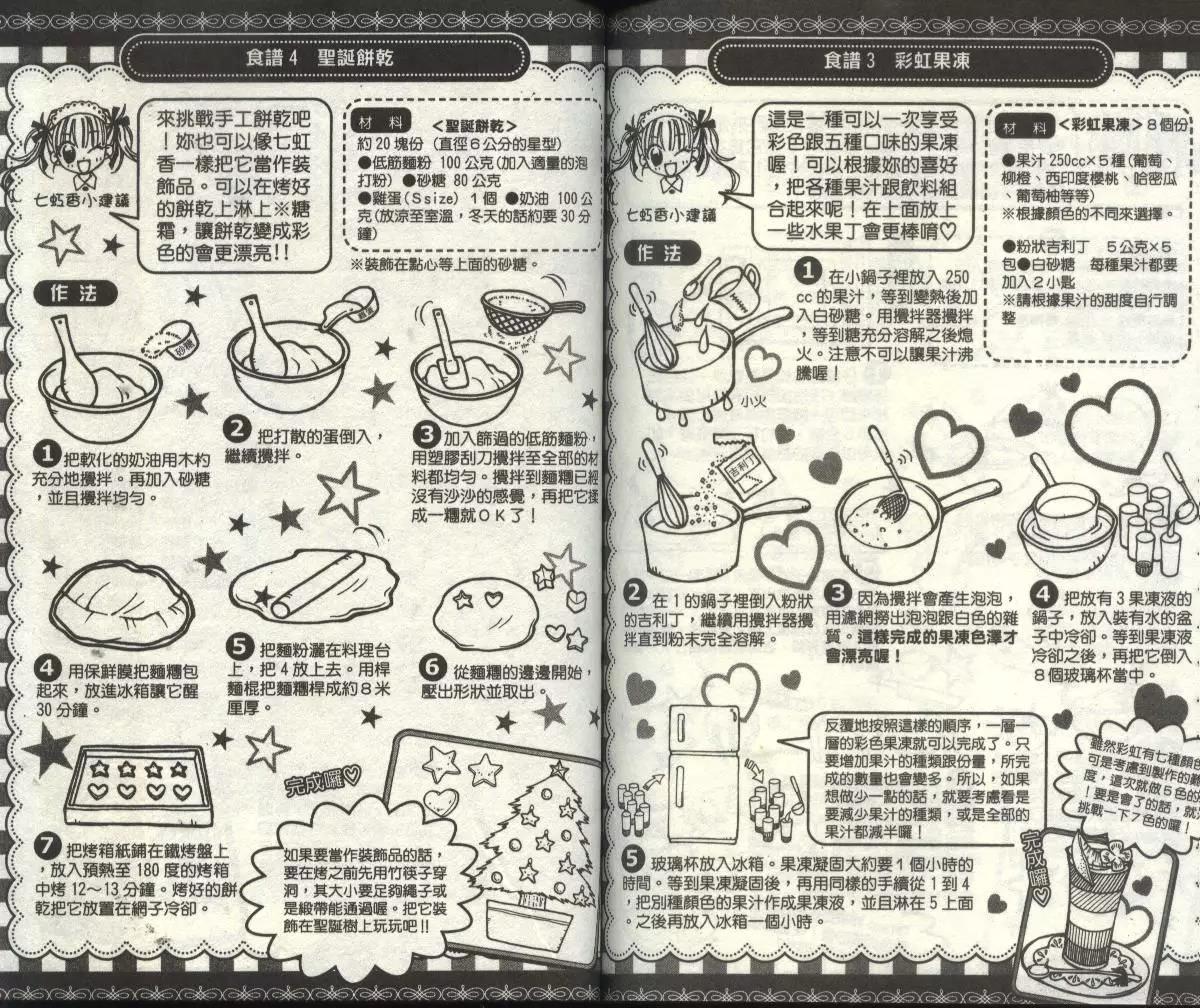 食譜4 聖誕餅乾
來挑戰手工餅乾吧
！妳也可以像七虹
香一樣把它當作裝
飾品。可以在烤好
的餅乾上淋上※糖
霜，讓餅乾變成彩
色的會更漂亮!!
七虹香小建議
材 料 <聖誕餅乾>
約20塊份 (直徑6公分的星型)
●低筋麵粉 100公克(加入適量的泡
打粉) ●砂糖 80公克
●雞蛋(Ssize) 1個 ●奶油 100公
克(放涼至室溫，冬天的話約要30分
鐘)
※裝飾在點心等上面的砂糖。
作法
砂糖
❶把軟化的奶油用木杓
充分地攪拌。再加入砂糖
，並且攪拌均勻。
❷ 把打散的蛋倒入，
繼續攪拌。
❸加入篩過的低筋麵粉，
用塑膠刮刀攪拌至全部的材
料都均勻。攪拌到麵糰已經
沒有沙沙的感覺，再把它揉
成一糰就OK了！
❹ 用保鮮膜把麵糰包
起來，放進冰箱讓它醒
30分鐘。
❺ 把麵粉灑在料理台
上，把4放上去。用桿
麵棍把麵糰桿成約8米
厘厚。
❻ 從麵糰的邊邊開始，
壓出形狀並取出。
❼ 把烤箱紙鋪在鐵烤盤上
，放入預熱至180度的烤箱
中烤12～13分鐘。烤好的餅
乾把它放置在網子冷卻。
完成囉♡
如果要當作裝飾品的話，
要在烤之前先用竹筷子穿
洞，其大小要足夠繩子或
是緞帶能通過喔。把它裝
飾在聖誕樹上玩玩吧!!
食譜3 彩虹果凍
這是一種可以一次享受
彩色跟五種口味的果凍
喔！可以根據妳的喜好
，把各種果汁跟飲料組
合起來呢！在上面放上
一些水果丁會更棒唷♡
七虹香小建議
材 料 <彩虹果凍>8個份
●果汁250cc×5種(葡萄、
柳橙、西印度櫻桃、哈密瓜
、葡萄柚等等)
※根據顏色的不同來選擇。
●粉狀吉利丁 5公克×5
包●白砂糖 每種果汁都要
加入2小匙
※請根據果汁的甜度自行調
整
作法
❶ 在小鍋子裡放入250
cc的果汁，等到變熱後加
入白砂糖。用攪拌器攪拌
，等到糖充分溶解之後熄
火。注意不可以讓果汁沸
騰喔！
小火
吉利丁
❷ 在1的鍋子裡倒入粉狀
的吉利丁，繼續用攪拌器攪
拌直到粉末完全溶解。
❸ 因為攪拌會產生泡泡，
用濾網撈出泡泡跟白色的雜
質。這樣完成的果凍色澤才
會漂亮喔！
❹ 把放有3果凍液的
鍋子，放入裝有水的盆
子中冷卻。等到果凍液
冷卻之後，再把它倒入
8個玻璃杯當中。
反覆地按照這樣的順序，一層一
層的彩色果凍就可以完成了。只
要增加果汁的種類跟份量，所完
成的數量也會變多。所以，如果
想做少一點的話，就要考慮看是
要減少果汁的種類，或是全部的
果汁都減半囉！
❺ 玻璃杯放入冰箱。果凍凝固大約要1個小時的
時間。等到果凍凝固後，再用同樣的手續從1到4
，把別種顏色的果汁作成果凍液，並且淋在5上面
。之後再放入冰箱一個小時。
雖然彩虹有七種顏色
可是考慮到製作的難
度，這次就做5色的
！要是會了的話，就
挑戰一下7色的囉！
完成囉♡